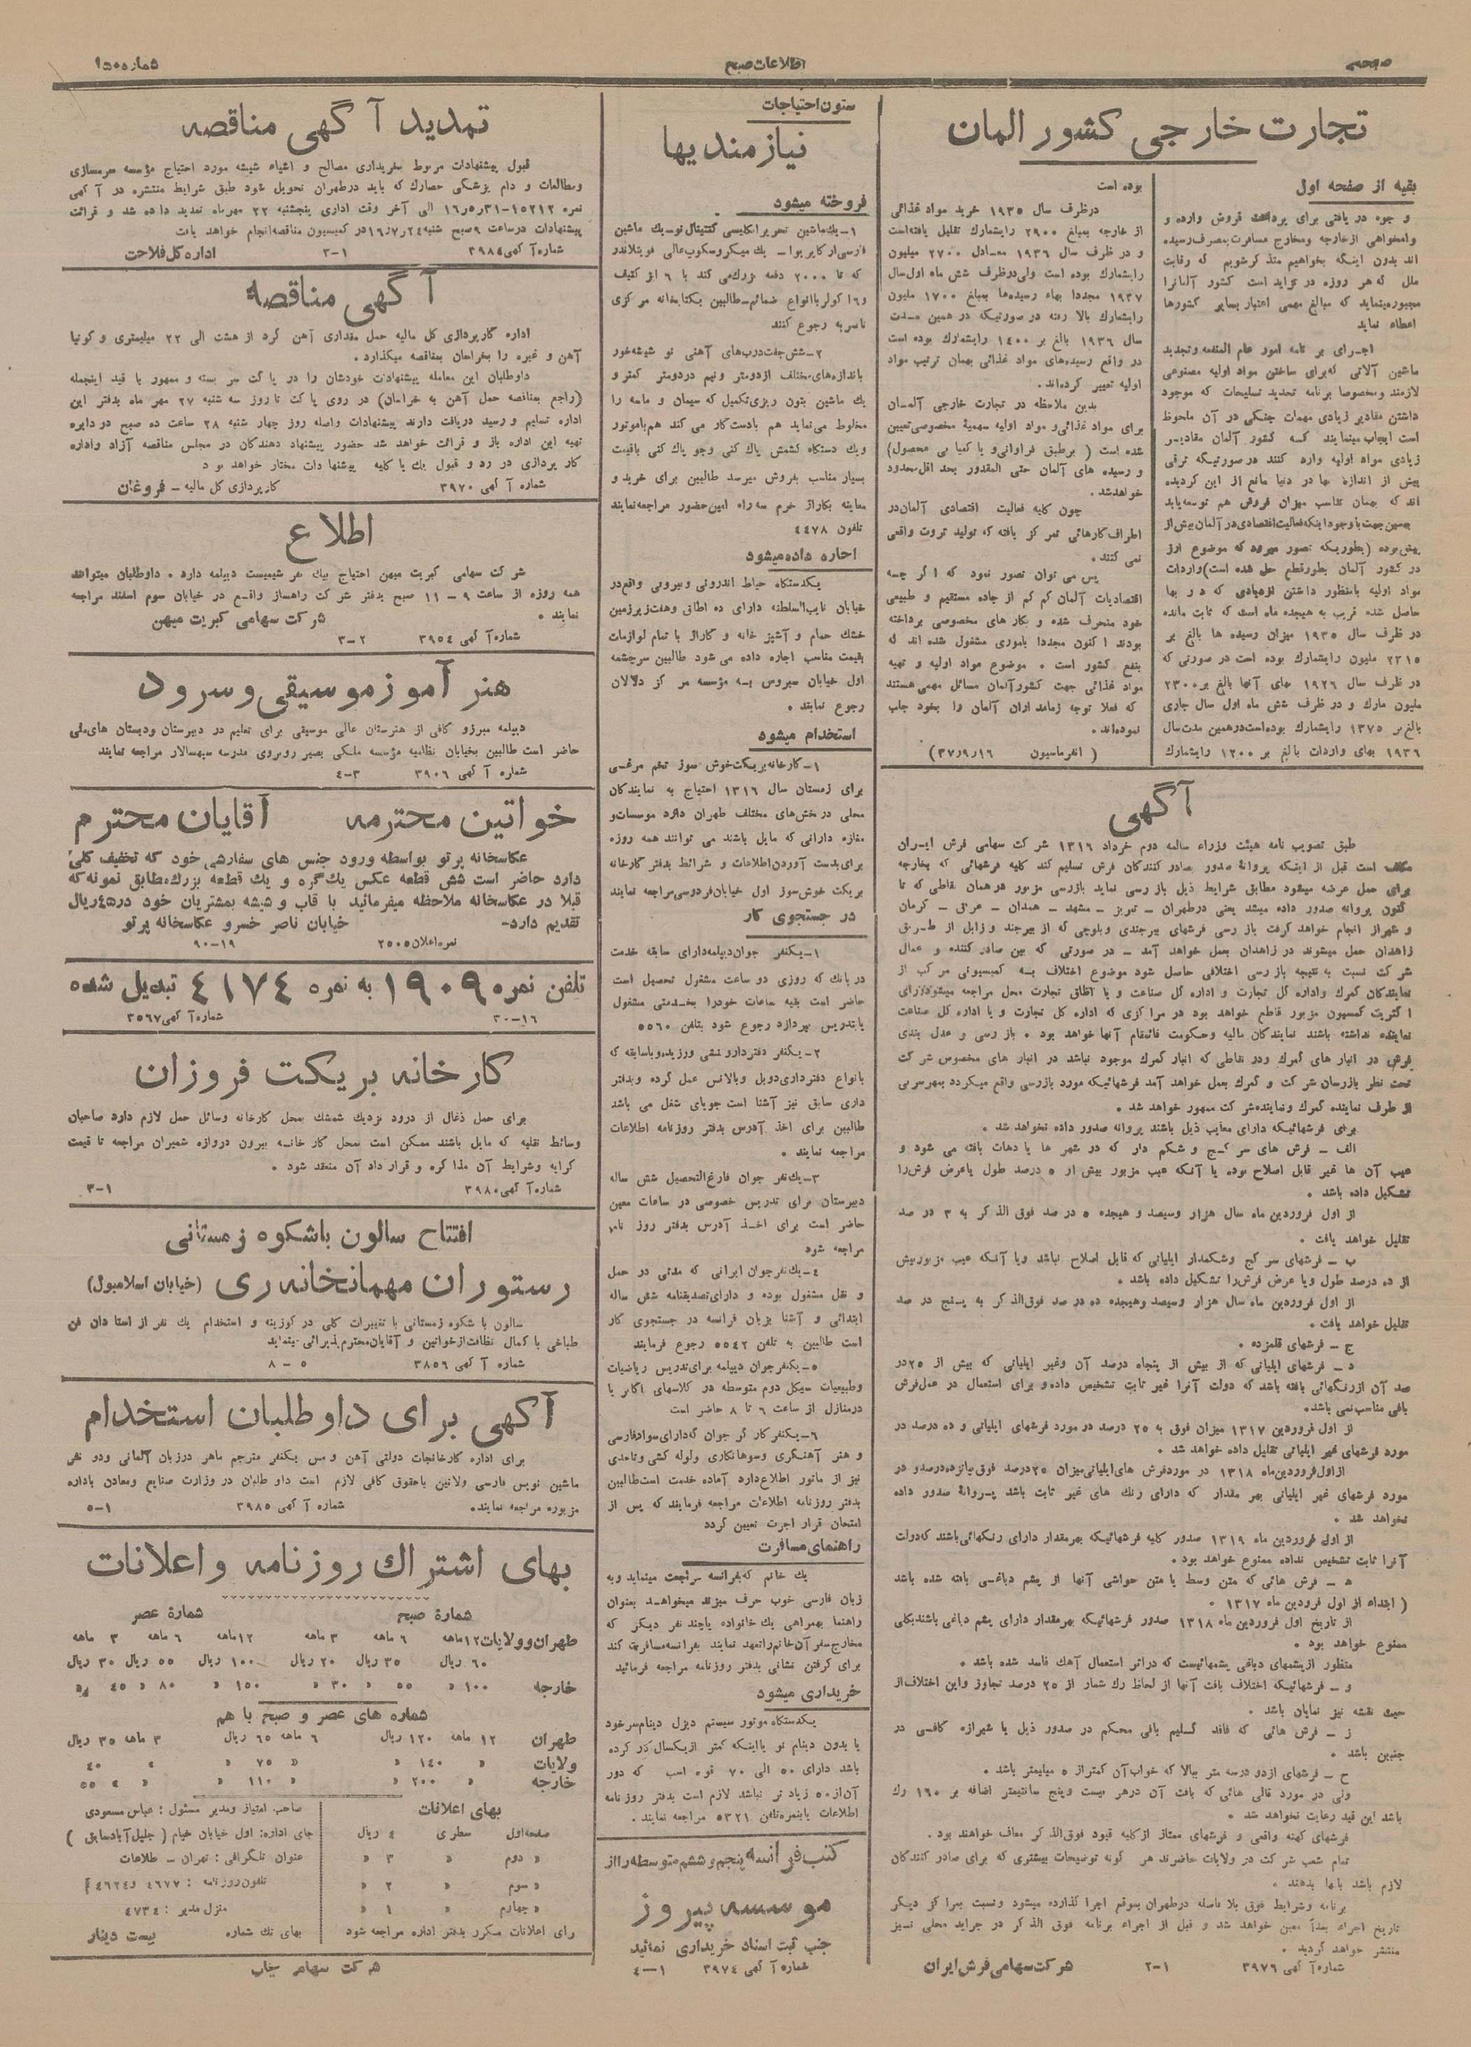 صفحه
اطلاعات صبح
شماره ۱۵۰
تجارت خارجی کشور المان
بقیه از صفحه اول
و جوه در یافتی برای پرداخت قروش وارده و
وامخواهی از خارجه ومخارج مسافرت بمصرف رسیده
اند بدون اینکه بخواهیم متذکر شویم که رقابت
ملل که هر روزه در تزاید است کشور آلمانرا
مجبور مینماید که مبالغ مهمی اعتبار بسایر کشورها
اعطاء نماید
اجرای بر نامه امور عام المنفعه وتجدید
ماشین آلاتی که برای ساختن مواد اولیه مصنوعی
لازمند ومخصوصا برنامه تجدید تسلیحات که موجود
داشتن مقادیر زیادی مهمات جنگی در آن ملحوظ
است ایجاب مینمایند که کشور آلمان مقادیر
زیادی مواد اولیه وارد کنند در صورتیکه ترقی
بیش از اندازه بها در دنیا مانع از این گردیده
اند که بهمان تناسب میزان فروش هم توسعه یابد
بهمین جهت با وجود اینکه فعالیت اقتصادی در آلمان بیش از
پیش بوده (بطوریکه تصور میرود که موضوع ارز
در کشور آلمان بطور قطع حل شده است) واردات
مواد اولیه بامنظور داشتن ازدیادی که در بها
حاصل شده قریب به هیجده ماه است که ثابت مانده
در ظرف سال ۱۹۳۵ میزان رسیده ها بالغ بر
۲۳۱۵ ملیون رایشمارک بوده است در صورتی که
در ظرف سال ۱۹۳۶ بهای آنها بالغ بر ۲۳۰۰
ملیون مارک و در ظرف شش ماه اول سال جاری
بالغ بر ۱۳۷۵ رایشمارک بوده است درهمین مدت سال
۱۹۳۶ بهای واردات بالغ بر ۱۲۰۰ رایشمارک
بوده است
درظرف سال ۱۹۳۵ خرید مواد غذائی
از خارجه بمبلغ ۲۹۰۰ رایشمارک تقلیل یافته است
و در ظرف سال ۱۹۳۶ معادل ۲۷۰۰ میلیون
رایشمارک بوده است ولی درظرف شش ماه اول سال
۱۹۳۷ مجددا بهاء رسیده ها بمبلغ ۱۷۰۰ ملیون
رایشمارک بالا رفته در صورتیکه در همین مدت
سال ۱۹۳۶ بالغ بر ۱۴۰۰ رایشمارک بوده است
در واقع رسیده های مواد غذائی بهمان ترتیب مواد
اولیه تغییر کرده اند.
بدین ملاحظه در تجارت خارجی آلمان
برای مواد غذائی و مواد اولیه سهمیهٔ مخصوصی تعیین
شده است ( برطبق فراوانی و یا کمیابی محصول)
و رسیده های آلمان حتی المقدور بحد اقل محدود
خواهد شد.
چون کلیه فعالیت اقتصادی آلمان در
اطراف کارهائی تمرکز یافته که تولید ثروت واقعی
نمی کنند.
پس می توان تصور نمود که اگر چه
اقتصادیات آلمان کم کم از جاده مستقیم و طبیعی
خود منحرف شده و بکار های مخصوصی پرداخته
بودند اکنون مجددا باموری مشغول شده اند که
بنفع کشور است . موضوع مواد اولیه و تهیه
مواد غذائی جهت کشور آلمان مسائل مهمی هستند
که فعلا توجه زمامداران آلمان را بخود جلب
نموده اند.
( انفرماسیون ۳۷٫۹٫۱۶)
آگهی
طبق تصویب نامه هیئت وزراء سالمه دوم خرداد ۱۳۱۶ شرکت سهامی فرش ایران
مکلف است قبل از اینکه پروانهٔ صدور بصادر کنندگان فرش تسلیم کند کلیه فرشهائی که بخارجه
برای حمل عرضه میشود مطابق شرایط ذیل بازرسی نماید بازرسی مزبور در همان نقاطی که تا
کنون پروانه صدور داده میشد یعنی درطهران – تبریز – مشهد – همدان – عراق – کرمان
و شیراز انجام خواهد گرفت بازرسی فرشهای بیرجندی و بلوچی که از بیرجند و زابل از طریق
زاهدان حمل میشوند در زاهدان بعمل خواهد آمد – در صورتی که بین صادر کننده و عمال
شرکت نسبت به نتیجه بازرسی اختلافی حاصل شود موضوع اختلاف به کمیسیونی مرکب از
نمایندگان گمرک واداره کل تجارت و اداره کل صناعت و یا اطاق تجارت محل مراجعه میشود رأی
اکثریت کمسیون مزبور قاطع خواهد بود در مراکزی که اداره کل تجارت و یا اداره کل صناعت
نماینده نداشته باشند نمایندگان مالیه و حکومت قائمقام آنها خواهد بود . بازرسی و عدل بندی
فرش در انبار های گمرک ودر نقاطی که انبار گمرک موجود نباشد در انبار های مخصوص شرکت
تحت نظر بازرسان شرکت و گمرک بعمل خواهد آمد فرشهائیکه مورد بازرسی واقع میگردد بمهر سربی
از طرف نماینده گمرک ونماینده شرکت ممهور خواهد شد .
برای فرشهائیکه دارای معایب ذیل باشند پروانه صدور داده نخواهد شد .
الف – فرش های سر کج و شکم دار که در شهر ها یا دهات بافته می شود و
عیب آن ها غیر قابل اصلاح بوده یا آنکه عیب مزبور بیش از ۵ درصد طول یا عرض فرش را
تشکیل داده باشد .
از اول فروردین ماه سال هزار وسیصد و هیجده ۵ در صد فوق الذکر به ۳ در صد
تقلیل خواهد یافت .
ب – فرشهای سر کج وشکمدار ایلیاتی که قابل اصلاح نباشد ویا آنکه عیب مزبور بیش
از ده درصد طول ویا عرض فرش را تشکیل داده باشد .
از اول فروردین ماه سال هزار وسیصد وهیجده ده در صد فوق الذکر به پنج در صد
تقلیل خواهد یافت .
ج – فرشهای قلمزده .
د – فرشهای ایلیاتی که از بیش از پنجاه درصد آن وغیر ایلیاتی که بیش از ۲۵ در
صد آن از رنگهائی بافته باشد که دولت آنرا غیر ثابت تشخیص داده و برای استعمال در عمل فرش
بافی مناسب نمی باشد.
از اول فروردین ۱۳۱۷ میزان فوق به ۲۵ درصد در مورد فرشهای ایلیاتی و ده درصد در
مورد فرشهای غیر ایلیاتی تقلیل داده خواهد شد .
از اول فروردین ماه ۱۳۱۸ در مورد فرش های ایلیاتی میزان ۲۵ درصد فوق بپانزده درصد و در
مورد فرشهای غیر ایلیاتی بهر مقدار که دارای رنگ های غیر ثابت باشد پروانهٔ صدور داده
نخواهد شد .
از اول فروردین ماه ۱۳۱۹ صدور کلیه فرشهائیکه بهر مقدار دارای رنگهائی باشند که دولت
آنرا ثابت تشخیص نداده ممنوع خواهد بود .
ه – فرش هائی که متن وسط یا متن حواشی آنها از پشم دباغی بافته شده باشد
( ابتداء از اول فروردین ماه ۱۳۱۷ .
از تاریخ اول فروردین ماه ۱۳۱۸ صدور فرشهائیکه بهر مقدار دارای پشم دباغی باشند بکلی
ممنوع خواهد بود .
منظور از پشمهای دباغی پشمهائیست که در اثر استعمال آهک فاسد شده باشد .
و – فرشهائیکه اختلاف بافت آنها از لحاظ رک شمار از ۲۵ درصد تجاوز و این اختلاف از
حیث نقشه نیز نمایان باشد .
ز – فرش هائی که فاقد گلیم بافی محکم در صدور ذیل یا شیرازه کافی در
جنبین باشد .
ح – فرشهای از دو درسه متر ببالا که خواب آن کمتر از ۵ میلیمتر باشد .
ولی در مورد قالی هائی که بافت آن درهر بیست وپنج سانتیمتر اضافه بر ۱۶۰ رک
باشد این قید رعایت نخواهد شد .
فرشهای کهنه واقعی و فرشهای ممتاز از کلیه قیود فوق الذکر معاف خواهند بود .
تمام شعب شرکت در ولایات حاضرند هر گونه توضیحات بیشتری که برای صادر کنندگان
لازم باشد بآنها بدهند .
برنامه وشرایط فوق بلا فاصله درطهران بموقع اجرا گذارده میشود ونسبت بمراکز دیگر
تاریخ اجراء بعداً معین خواهد شد و قبل از اجراء برنامه فوق الذکر در جراید محلی نیز
منتشر خواهد گردید .
شماره آگهی ۳۹۷۶ ۱-۲ شرکت سهامی فرش ایران
ستون احتیاجات
نیازمندیها
فروخته میشود
۱– یک ماشین تحریر انگلیسی کنتینال نو – یک ماشین
فارسی ارکابر یوا – یک میکروسکوپ عالی فوبتلاندر
که تا ۲۰۰۰ دفعه بزرگ می کند با ۶ ابژکتیف
و ۱۶ اکولر با انواع ضمائم – طالبین بکتابخانه مرکزی
ناصریه رجوع کنند
۲– شش جفت درب های آهنی نو شیشه خور
باندازه های مختلف ازدومتر ونیم دردومتر کمتر و
یک ماشین بتون ریزی تکمیل که سیمان و ماسه را
مخلوط می نماید هم بادست کار می کند هم با موتور
ویک دستگاه کشمش پاک کنی وجو پاک کنی باقیمت
بسیار مناسب بفروش میرسد طالبین برای خرید و
معاینه بکاراژ خرم سه راه امین حضور مراجعه نمایند
تلفون ۴۴۷۸
اجاره داده میشود
یکدستگاه حیاط اندرونی وبیرونی واقع در
خیابان نایب السلطنه دارای ده اطاق وهفت زیرزمین
خشک حمام و آشپز خانه و گاراژ با تمام لوازمات
بقیمت مناسب اجاره داده می شود طالبین سرچشمه
اول خیابان سیروس به مؤسسه مرکز دلالان
رجوع نمایند .
استخدام میشود
۱– کارخانه بریکت خوش سوز تخم مرغی
برای زمستان سال ۱۳۱۶ احتیاج به نمایندگان
محلی در بخش های مختلف طهران دارد موسسات و
مغازه دارانی که مایل باشند می توانند همه روزه
برای بدست آوردن اطلاعات و شرائط بدفتر کارخانه
بریکت خوش سوز اول خیابان فردوسی مراجعه نمایند
در جستجوی کار
۱– یکنفر جوان دیپلمه دارای سابقه خدمت
در بانک که روزی دو ساعت مشغول تحصیل است
حاضر است بقیه ساعات خود را بخدمتی مشغول
یا بتدریس بپردازد رجوع شود بتلفن ۵۵۶۰
۲– یکنفر دفتردار و منشی ورزیده و با سابقه که
با نواع دفترداری دوبل و بالانس عمل کرده و بدفتر
داری سابق نیز آشنا است جویای شغل می باشد
طالبین برای اخذ آدرس بدفتر روزنامه اطلاعات
مراجعه نمایند .
۳– یک نفر جوان فارغ التحصیل شش ساله
دبیرستان برای تدریس خصوصی در ساعات معین
حاضر است برای اخذ آدرس بدفتر روز نامه
مراجعه شود
۴– یک نفر جوان ایرانی که مدتی در حمل
و نقل مشغول بوده و دارای تصدیقنامه شش ساله
ابتدائی و آشنا بزبان فرانسه در جستجوی کار
است طالبین به تلفن ۵۵۴۲ رجوع فرمایند
۵– یکنفر جوان دیپلمه برای تدریس ریاضیات
وطبیعیات سیکل دوم متوسطه در کلاسهای اکابر یا
در منازل از ساعت ۶ تا ۸ حاضر است
۶– یکنفر کارگر جوان که دارای سواد فارسی
و هنر آهنگری و سوهانکاری ولوله کشی و تاحدی
نیز از ماتور اطلاع دارد آماده خدمت است طالبین
بدفتر روزنامه اطلاعات مراجعه فرمایند که پس از
امتحان قرار اجرت تعیین گردد
راهنمای مسافرت
یک خانم که بفرانسه مراجعت مینماید و به
زبان فارسی خوب حرف میزند میخواهد بعنوان
راهنما بهمراهی یک خانواده یا چند نفر دیگر که
مخارج سفر آن خانم را تعهد نمایند بفرانسه مسافرت کند
برای گرفتن نشانی بدفتر روزنامه مراجعه فرمائید
خریداری میشود
یکدستگاه موتور سیستم دیزل دینام سرخود
یا بدون دینام نو یا اینکه کمتر از یکسال کار کرده
باشد دارای ۵۰ الی ۷۰ قوه اسب که دور
آن از ۵۰۰ زیاد تر نباشد لازم است بدفتر روزنامه
اطلاعات یا بنمره تلفن ۵۳۲۱ مراجعه نمایند .
کتب فرانسه پنجم و ششم متوسطه را از
موسسه پیروز
جنب ثبت اسناد خریداری نمائید
شماره آگهی ۳۹۷۴ ۱–۴
تمدید آگهی مناقصه
قبول پیشنهادات مربوط بخریداری مصالح و اشیاء شیشه مورد احتیاج مؤسسه سرمسازی
ومطالعات و دام پزشکی حصارک که باید درطهران تحویل شود طبق شرایط منتشره در آگهی
نمره ۱۵۲۱۲–۱۶٫۵٫۳۱ الی آخر وقت اداری پنجشنبه ۲۲ مهرماه تمدید داده شد و قرائت
پیشنهادات درساعت ۹ صبح شنبه ۱۶٫۷٫۲۴ در کمیسیون مناقصه انجام خواهد یافت
شماره آگهی ۳۹۸۴ ۱–۳ اداره کل فلاحت
آگهی مناقصه
اداره کارپردازی کل مالیه حمل مقداری آهن گرد از هشت الی ۲۲ میلیمتری و کونیا
آهن و غیره را بخراسان بمناقصه میگذارد.
داوطلبان این معامله پیشنهادات خودشان را در پاکت سر بسته و ممهور با قید اینجمله
(راجع بمناقصه حمل آهن به خراسان) در روی پاکت تا روز سه شنبه ۲۷ مهر ماه بدفتر این
اداره تسلیم و رسید دریافت دارند پیشنهادات واصله روز چهار شنبه ۲۸ ساعت ده صبح در دایره
تهیه این اداره باز و قرائت خواهد شد حضور پیشنهاد دهندگان در مجلس مناقصه آزاد واداره
کارپردازی در رد و قبول یک یا کلیه پیشنهادات مختار خواهد بود
شماره آگهی ۳۹۷۰ کارپردازی کل مالیه – فروغان
اطلاع
شرکت سهامی کبریت میهن احتیاج بیک نفر شیمیست دیپلمه دارد . داوطلبان میتوانند
همه روزه از ساعت ۹ – ۱۱ صبح بدفتر شرکت راهساز واقع در خیابان سوم اسفند مراجعه
نمایند . شرکت سهامی کبریت میهن
شماره آگهی ۳۹۵۴ ۲–۳
هنر آموز موسیقی و سرود
دیپلمه مبرزو کافی از هنرستان عالی موسیقی برای تعلیم در دبیرستان ودبستان های ملی
حاضر است طالبین بخیابان نظامیه مؤسسه ملکی بصیر روبروی مدرسه سپهسالار مراجعه نمایند
شماره آگهی ۳۹۰۶ ۳–۴
خواتین محترمه آقایان محترم
عکاسخانه پرتو بواسطه ورود جنس های سفارشی خود که تخفیف کلی
دارد حاضر است شش قطعه عکس یک گره و یک قطعه بزرگ مطابق نمونه که
قبلا در عکاسخانه ملاحظه میفرمائید با قاب و شیشه بمشتریان خود در ۴۵ ریال
تقدیم دارد- خیابان ناصر خسرو عکاسخانه پرتو
نمره اعلان ۲۵۰۵ ۱۹–۹۰
تلفن نمره ۱۹۰۹ به نمره ۴۱۷۴ تبدیل شده
۱۶–۳۰ شماره آگهی ۳۵۶۷
کارخانه بریکت فروزان
برای حمل ذغال از درود نزدیک شمشک بمحل کارخانه وسائل حمل لازم دارد صاحبان
وسائط نقلیه که مایل باشند ممکن است بمحل کارخانه بیرون دروازه شمیران مراجعه تا قیمت
کرایه وشرایط آن مذاکره و قرار داد آن منعقد شود .
شماره آگهی ۳۹۸۰ ۱–۳
افتتاح سالون باشکوه زمستانی
رستوران مهمانخانه ری (خیابان اسلامبول)
سالون با شکوه زمستانی با تغییرات کلی در کوزینه و استخدام یک نفر از استادان فن
طباخی با کمال نظافت از خواتین و آقایان محترم پذیرائی مینماید
شماره آگهی ۳۸۵۶ ۵ – ۸
آگهی برای داوطلبان استخدام
برای اداره کارخانجات دولتی آهن و مس یکنفر مترجم ماهر درزبان آلمانی ودو نفر
ماشین نویس فارسی ولاتین باحقوق کافی لازم است داوطلبان در وزارت صنایع ومعادن باداره
مزبوره مراجعه نمایند. شماره آگهی ۳۹۸۵ ۱–۵
بهای اشتراک روزنامه و اعلانات
شمارهٔ صبح شمارهٔ عصر
طهران وولایات ۱۲ ماهه ۶ ماهه ۳ ماهه ۱۲ ماهه ۶ ماهه ۳ ماهه
۶۰ ریال ۳۵ ریال ۲۰ ریال ۱۰۰ ریال ۵۵ ریال ۳۰ ریال
خارجه ۱۰۰ » ۵۵ » ۳۰ » ۱۵۰ » ۸۰ » ۴۵ »
شماره های عصر و صبح با هم
طهران ۱۲ ماهه ۱۲۰ ریال ۶ ماهه ۶۵ ریال ۳ ماهه ۳۵ ریال
ولایات » ۱۴۰ » » ۷۵ » » ۴۰
خارجه » ۲۰۰ » » ۱۱۰ » » ۵۵
بهای اعلانات
صفحه اول سطری ۴ ریال
» دوم » ۳ »
» سوم » ۲ »
» چهارم » ۱ »
رای اعلانات مکرر بدفتر اداره مراجعه شود
صاحب امتیاز ومدیر مسئول : عباس مسعودی
جای اداره: اول خیابان خیام ( جلیل آباد سابق )
عنوان تلگرافی : تهران – طلاعات
تلفون روزنامه : ۴۶۷۷ و ۴۶۲۴
منزل مدیر : ۴۷۳۴
بهای تک شماره بیست دینار
شرکت سهامی چاپ